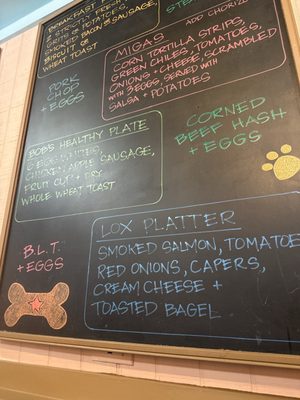 BREAKFAST
2 STRIPS
OF POTATOES
SMOKED BACON & SAUSAGE,
BISCUIT OR
WHEAT TOAST
ADD CHORIZO
MIGAS
CORN TORTILLA STRIPS,
GREEN CHILES, TOMATOES,
ONIONS + CHEESE, SCRAMBLED
WITH 3 EGGS, SERVED WITH
SALSA + POTATOES
PORK
CHOP
+ EGGS
CORNED
BEEF HASH
+ EGGS
BOB'S HEALTHY PLATE
3 EGG WHITES,
CHICKEN APPLE SAUSAGE,
FRUIT CUP + DRY
WHOLE WHEAT TOAST
B.L.T
+ EGGS
LOX PLATTER
SMOKED SALMON, TOMATOE
RED ONIONS, CAPERS,
CREAM CHEESE +
TOASTED BAGEL